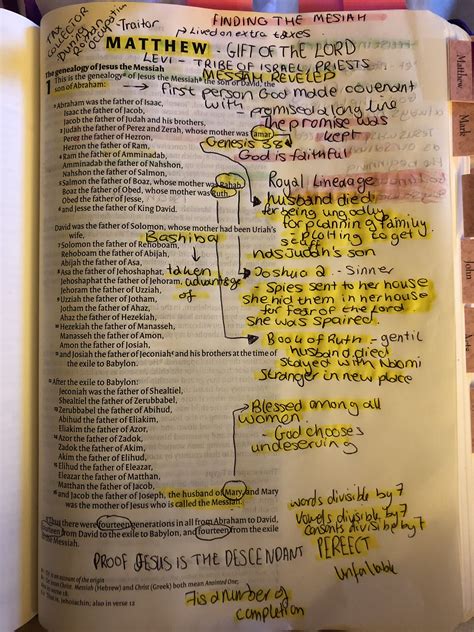 FINDING THE MESIAH
TAX
COLLECTOR
During
Roman
Occupation
-Traitor
Lived on extra taxes
MATTHEW - GIFT OF THE LORD
LEVI - TRIBE OF ISRAEL, PRIESTS
The genealogy of Jesus the Messiah
MESSIAH REVELED
1 This is the genealogy of Jesus the Messiah the son of David, the
son of Abraham:
first person God made covenant
with - promised a long line
Abraham was the father of Isaac,
Isaac the father of Jacob,
Jacob the father of Judah and his brothers,
The promise was
kept
Judah the father of Perez and Zerah, whose mother was Tamar,
Perez the father of Hezron,
Genesis 38
Hezron the father of Ram,
God is faithful
Ram the father of Amminadab,
Amminadab the father of Nahshon,
Nahshon the father of Salmon,
Salmon the father of Boaz, whose mother was Rahab,
Boaz the father of Obed, whose mother was Ruth,
Obed the father of Jesse,
and Jesse the father of King David.
Royal Lineage
husband died
for being ungodly
for planning family
- plotting to get
stuff
Judah's son
David was the father of Solomon, whose mother had been Uriah's
wife,
Bashiba
Solomon the father of Rehoboam,
Rehoboam the father of Abijah,
Abijah the father of Asa,
Asa the father of Jehoshaphat,
taken
advantage
of
Jehoshaphat the father of Jehoram,
Jehoram the father of Uzziah,
Uzziah the father of Jotham,
Jotham the father of Ahaz,
Ahaz the father of Hezekiah,
Hezekiah the father of Manasseh,
Manasseh the father of Amon,
Amon the father of Josiah,
and Josiah the father of Jeconiah and his brothers at the time of
the exile to Babylon.
Joshua 2 - Sinner
Spies sent to her house
she hid them in her house
for fear of the Lord
she was spaired.
Book of Ruth - gentil
husband died
Stayed with Naomi
Stranger in new place
After the exile to Babylon:
Jeconiah was the father of Shealtiel,
Shealtiel the father of Zerubbabel,
Zerubbabel the father of Abihud,
Abihud the father of Eliakim,
Eliakim the father of Azor,
Azor the father of Zadok,
Zadok the father of Akim,
Akim the father of Elihud,
Elihud the father of Eleazar,
Eleazar the father of Matthan,
Matthan the father of Jacob,
and Jacob the father of Joseph, the husband of Mary, and Mary
was the mother of Jesus who is called the Messiah.
Blessed among all
women
- God chooses
undeserving
Thus there were fourteen generations in all from Abraham to David,
fourteen from David to the exile to Babylon, and fourteen from the exile
to the Messiah.
words divisible by 7
Vowels divisible by 7
PERFECT
unfailable
PROOF JESUS IS THE DESCENDANT
7 is a number of
completion
Matthew
Mark
John
Acts